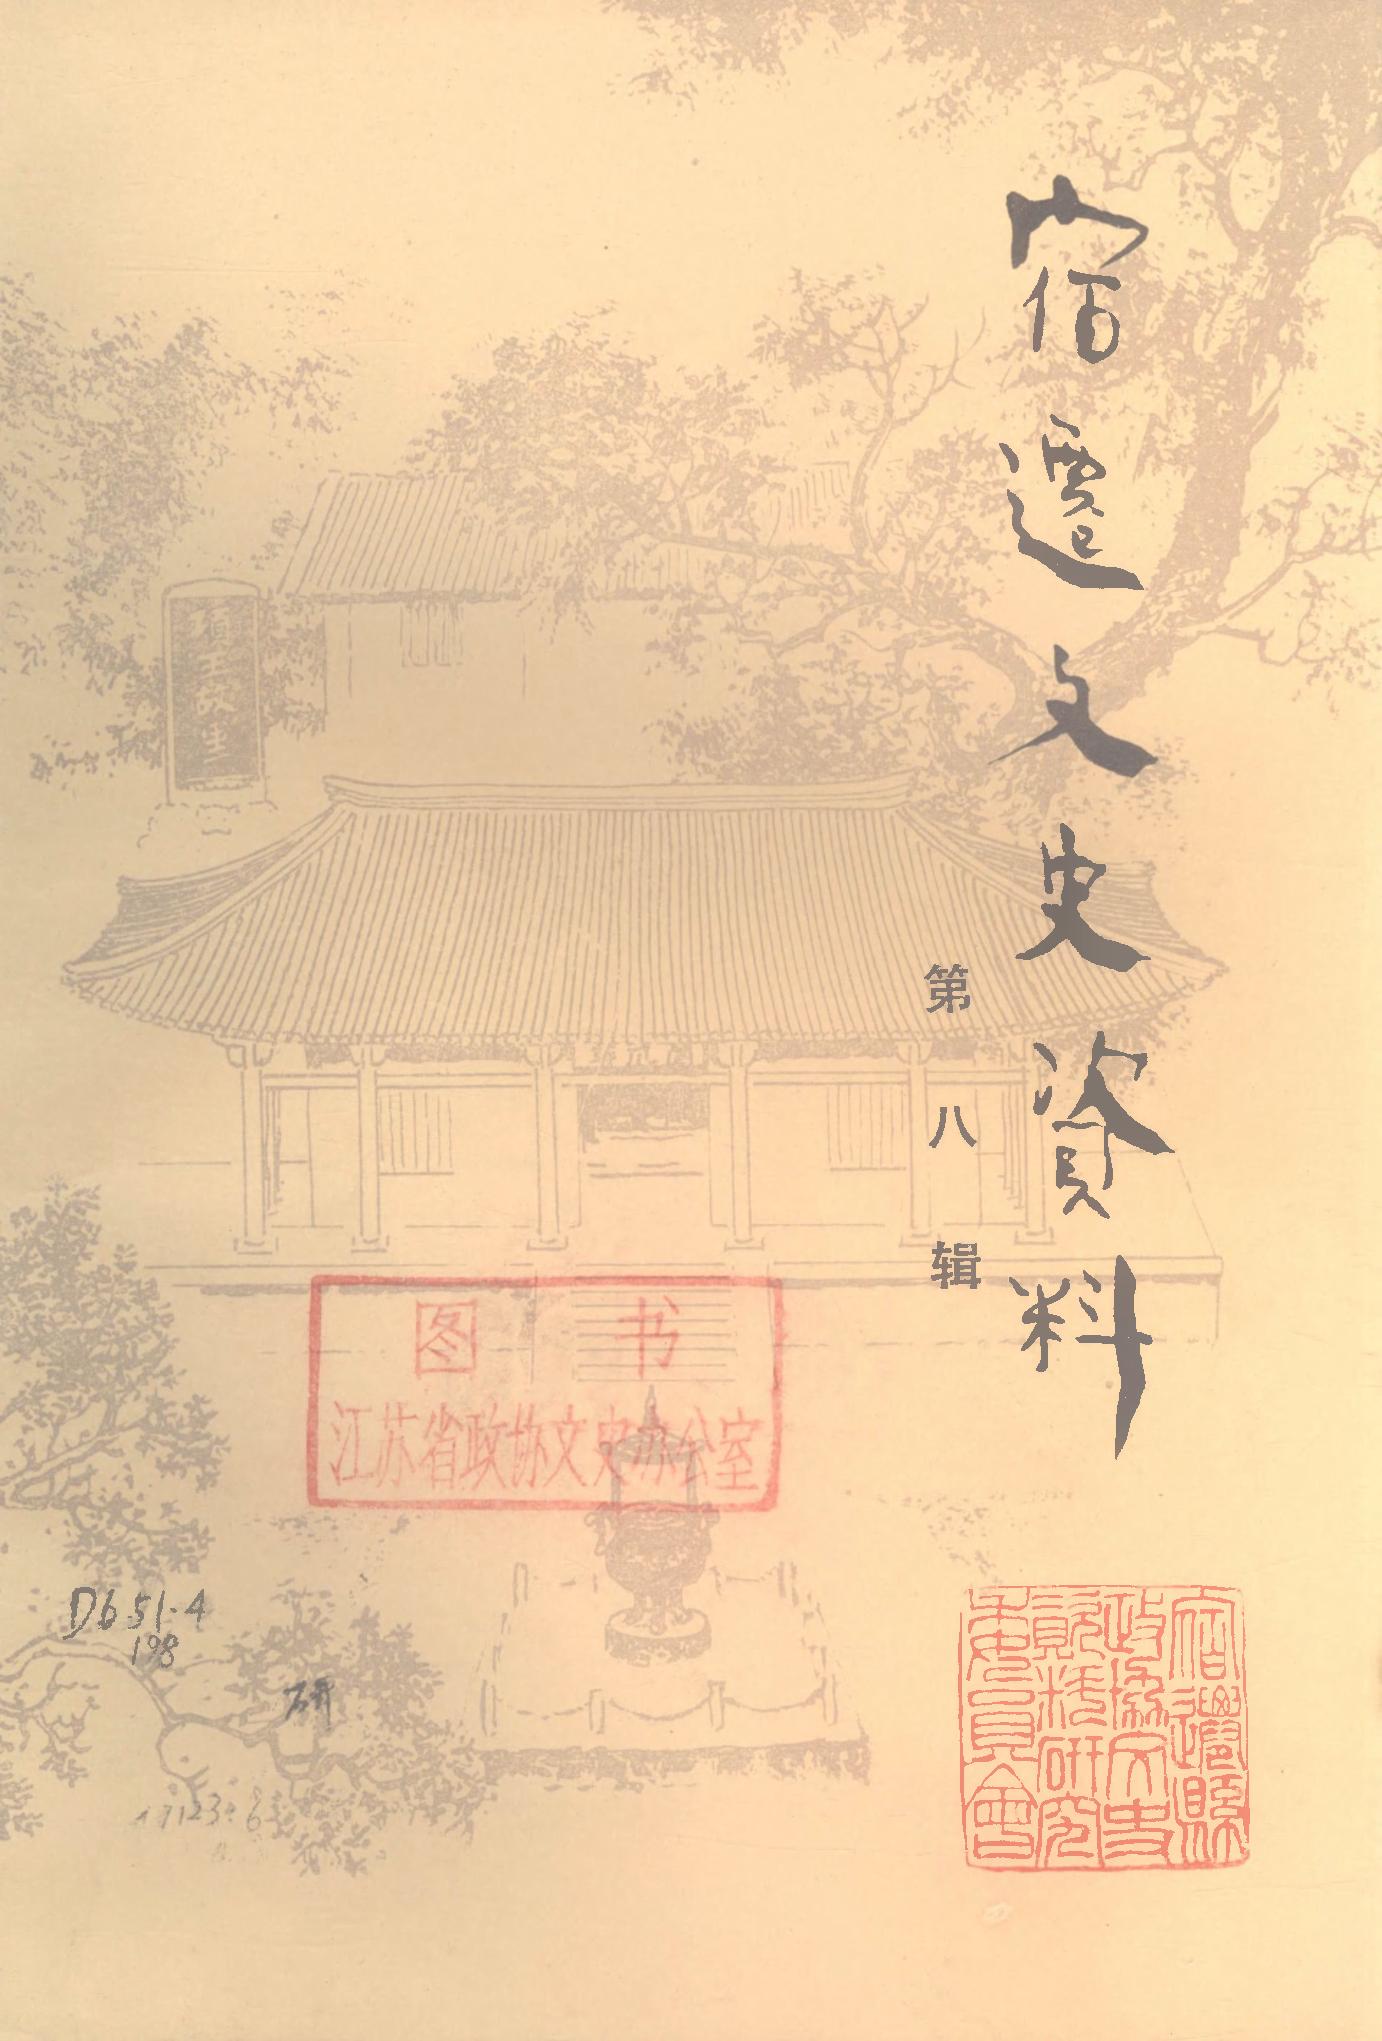 宿遷文史資料
第八辑
图书
江苏省政协文史办公室
D651.4
198
研
宿遷縣
政協文史
資料研究
委員會